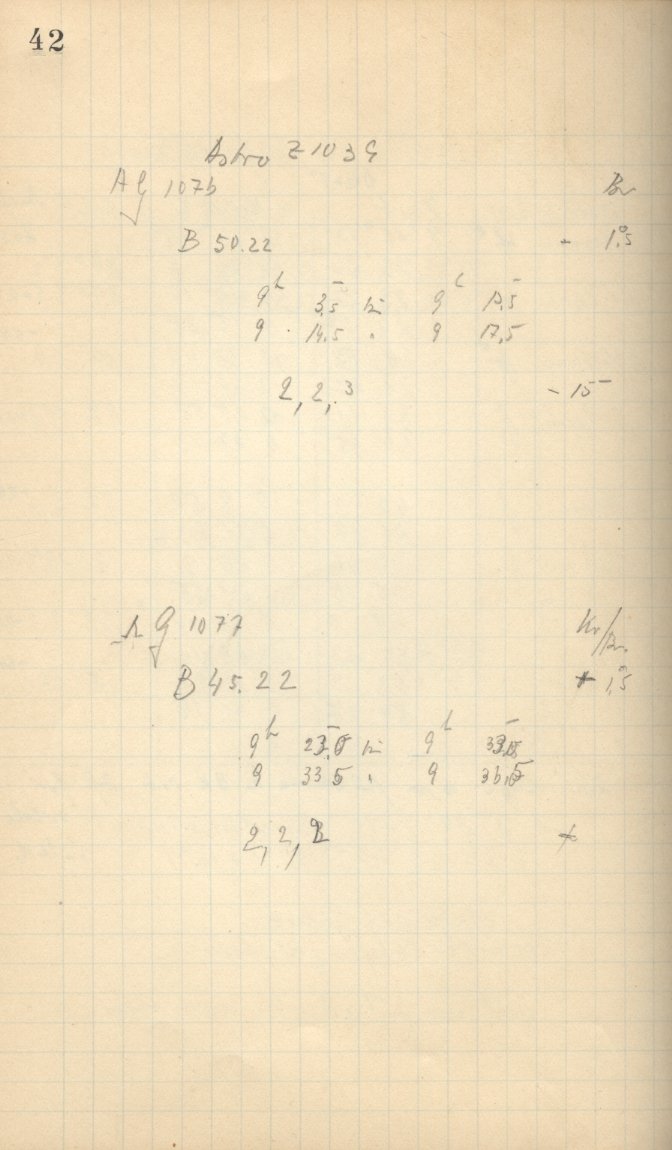 42
Astro Z 103 G
AG 1076 Br
B 50.22 - 1°.5
9h 3,5 bis 9h 13,5
9 14,5 " 9 17,5
2, 2, 3 - 15
AG 1077 Kr/Br.
B 45.22 + 1°.5
9h 23,5 bis 9h
9 33 5 " 9 36,5
2, 2, 2 +